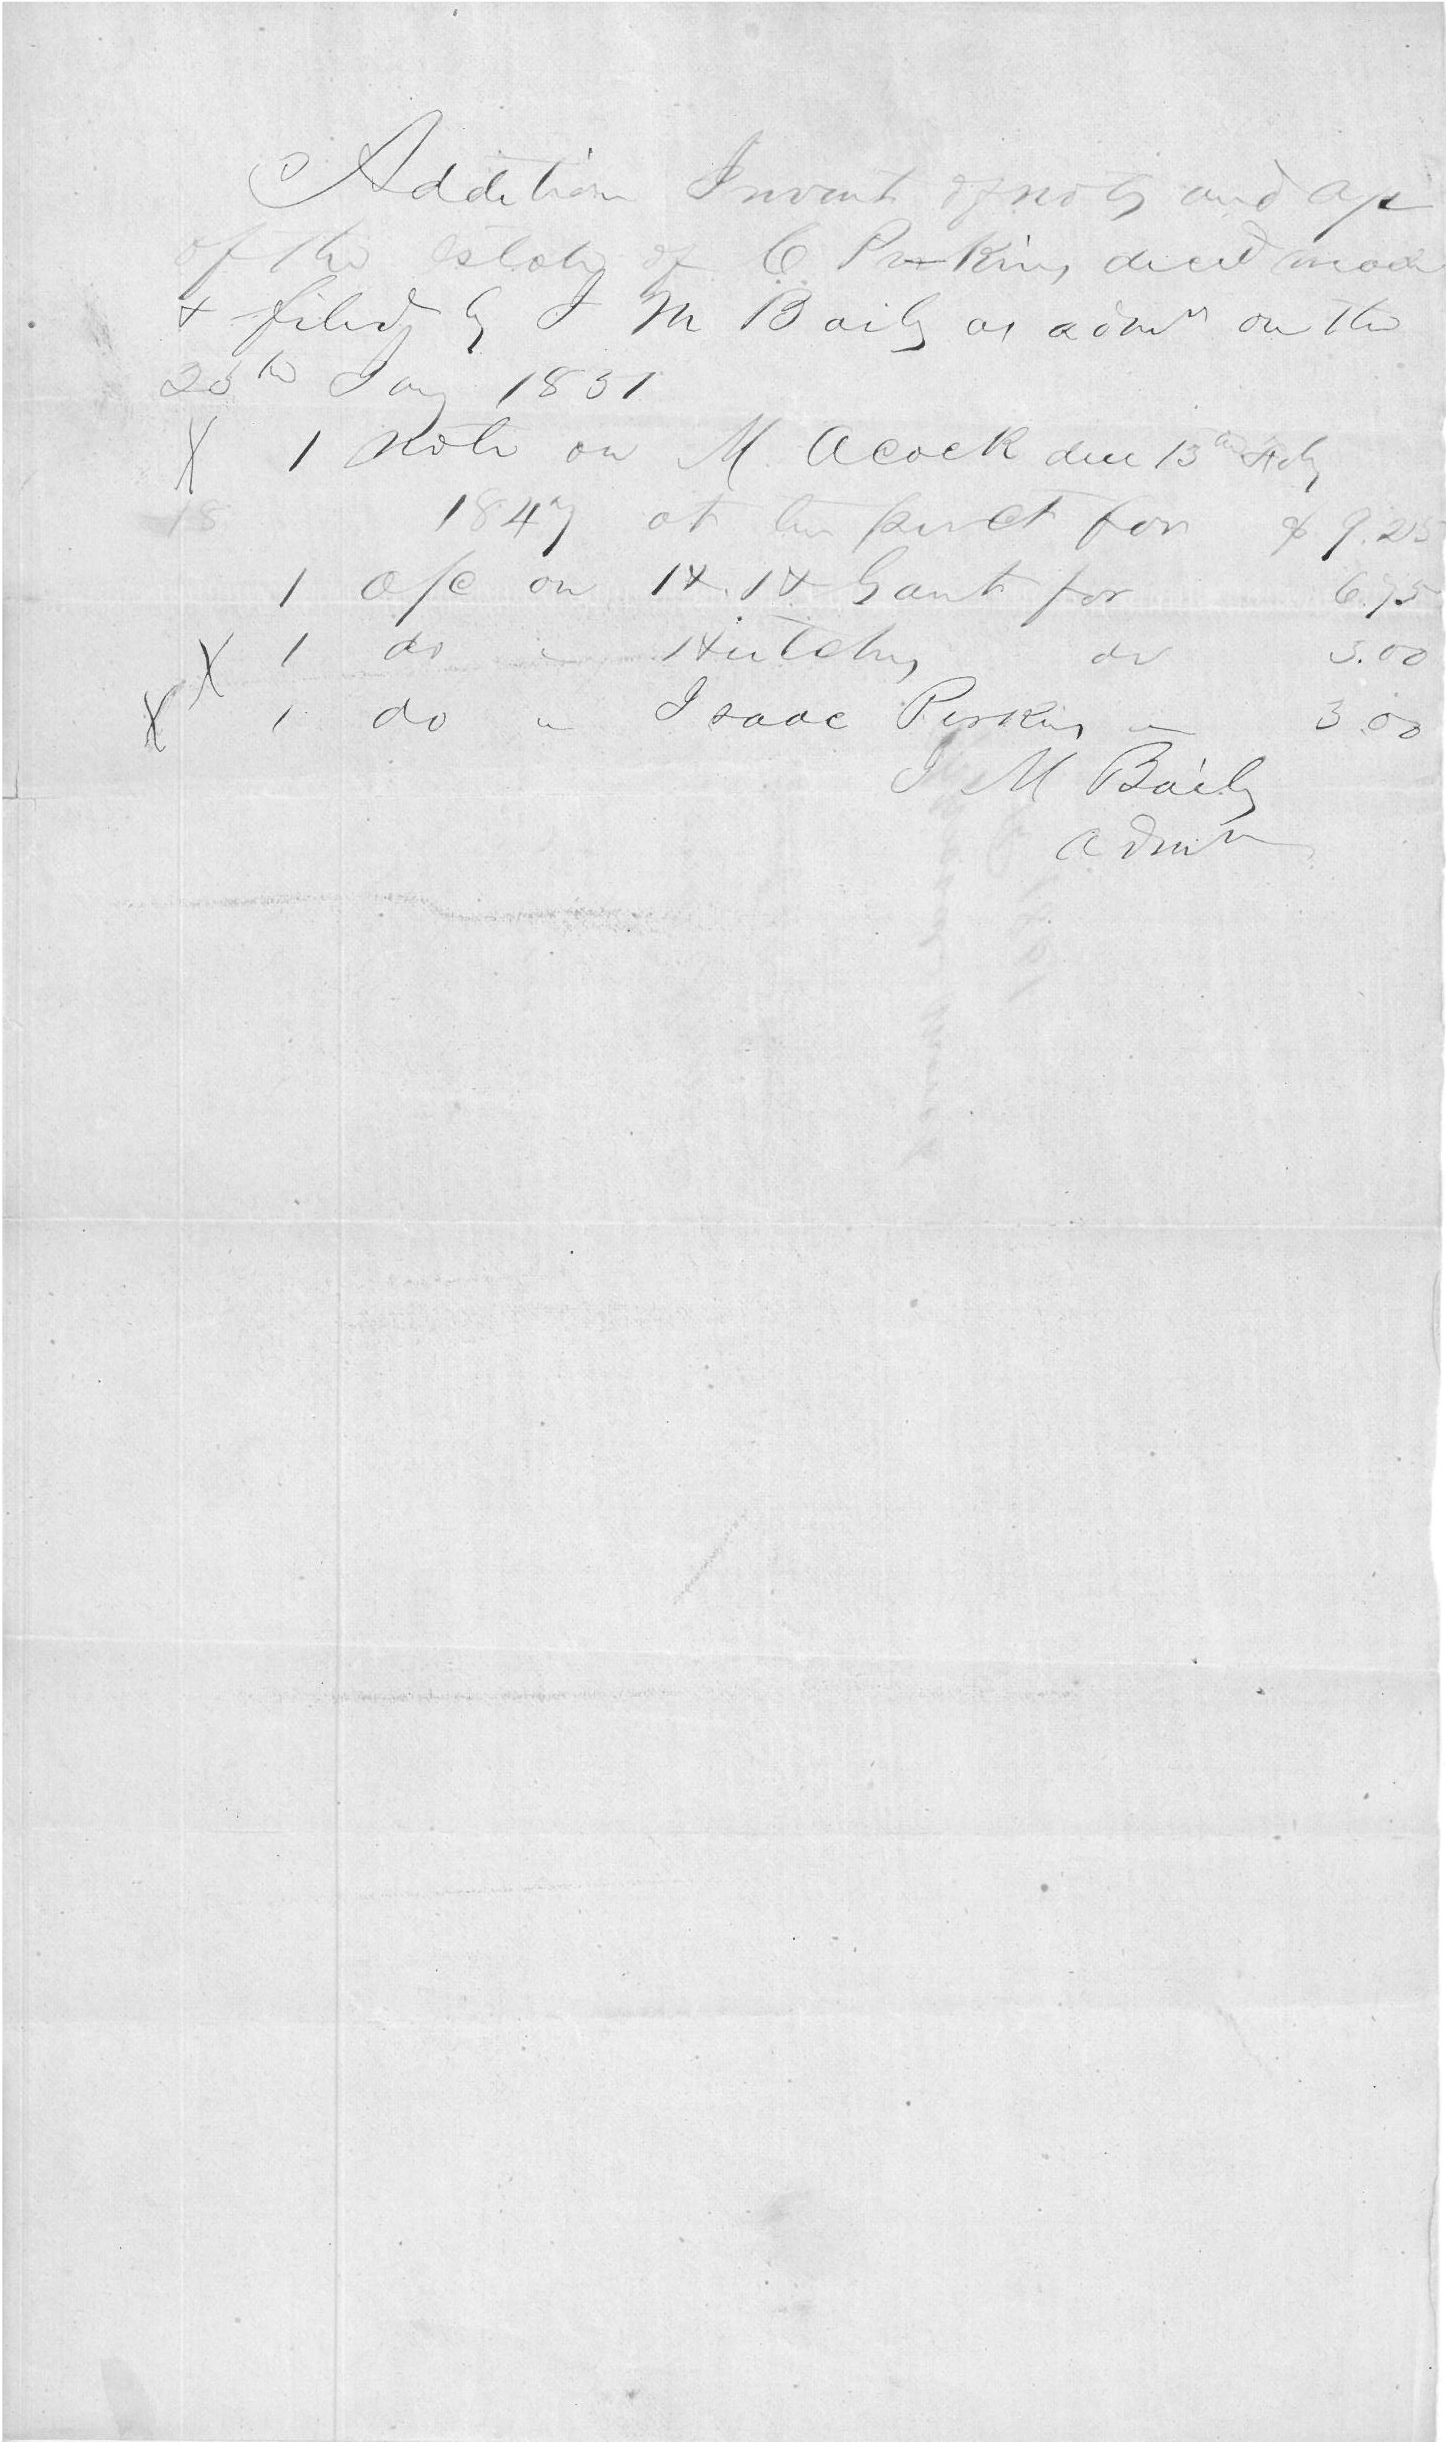 Addition Invent of nots and a/c
of the estate of C Perkins decd made
+ filed by J M Baily as admr on the
25th Jany 1851
X 1 note on M. Acock due 15th Feby
18 1847 at ten perct for $9.25
1 a/c on H. H Gant for 6.75
X 1 do " Hutchns do 3.00
X 1 do " Isaac Perkins " 3.00
J M Baily
admr